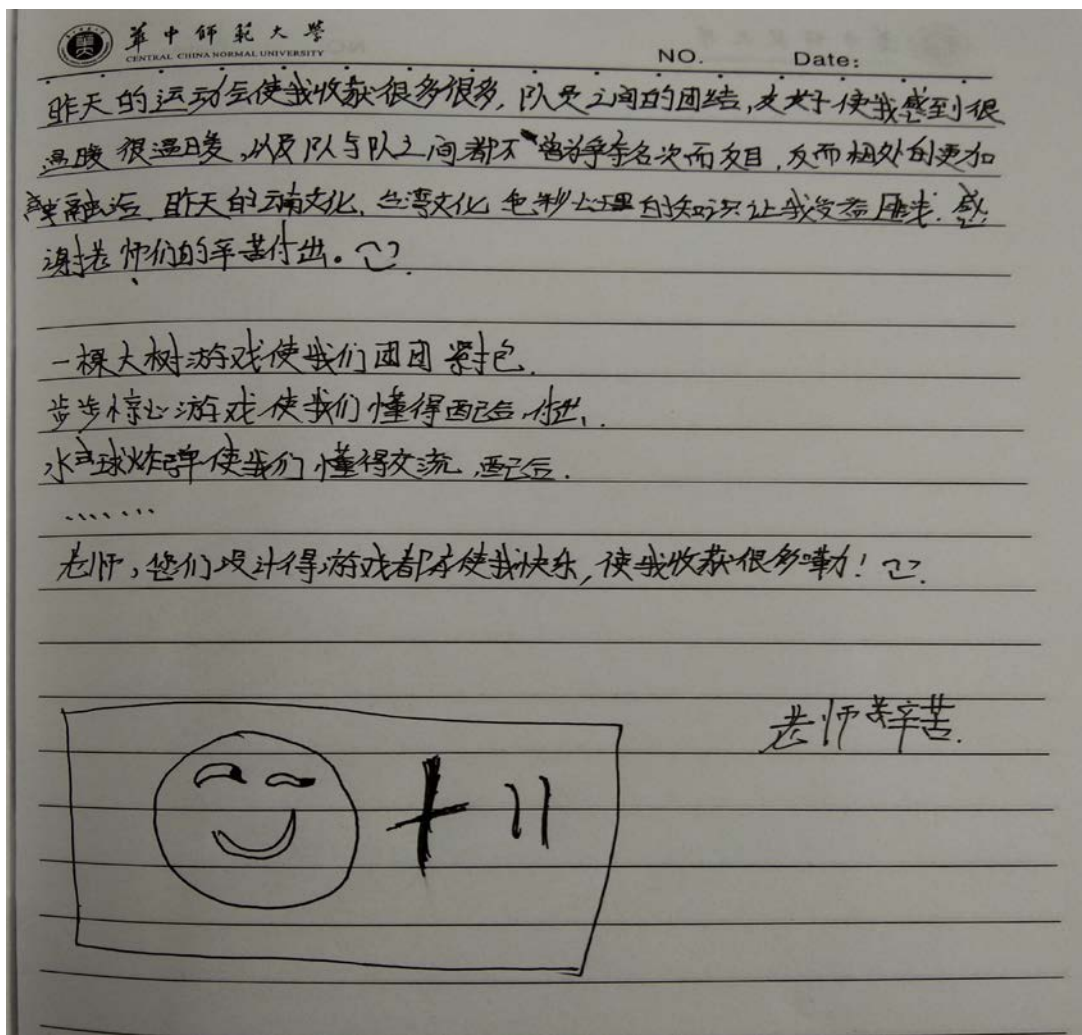 華中師範大學
CENTRAL CHINA NORMAL UNIVERSITY
NO. Date:
昨天的运动会使我收获很多很多,队员之间的团结,友好使我感到很
温暖很温暖,以及队与队之间都不曾为争夺名次而反目,反而相处的更加
融洽.昨天的云南文化、台湾文化 色彩心理的知识让我受益匪浅.感
谢老师们的辛苦付出。
一棵大树游戏使我们团团紧抱.
步步惊心游戏使我们懂得配合,付出、.
水球炸弹使我们懂得交流,配合.
.......
老师,您们设计得游戏都在使我快乐,使我收获很多嘞!
老师辛苦.
+11